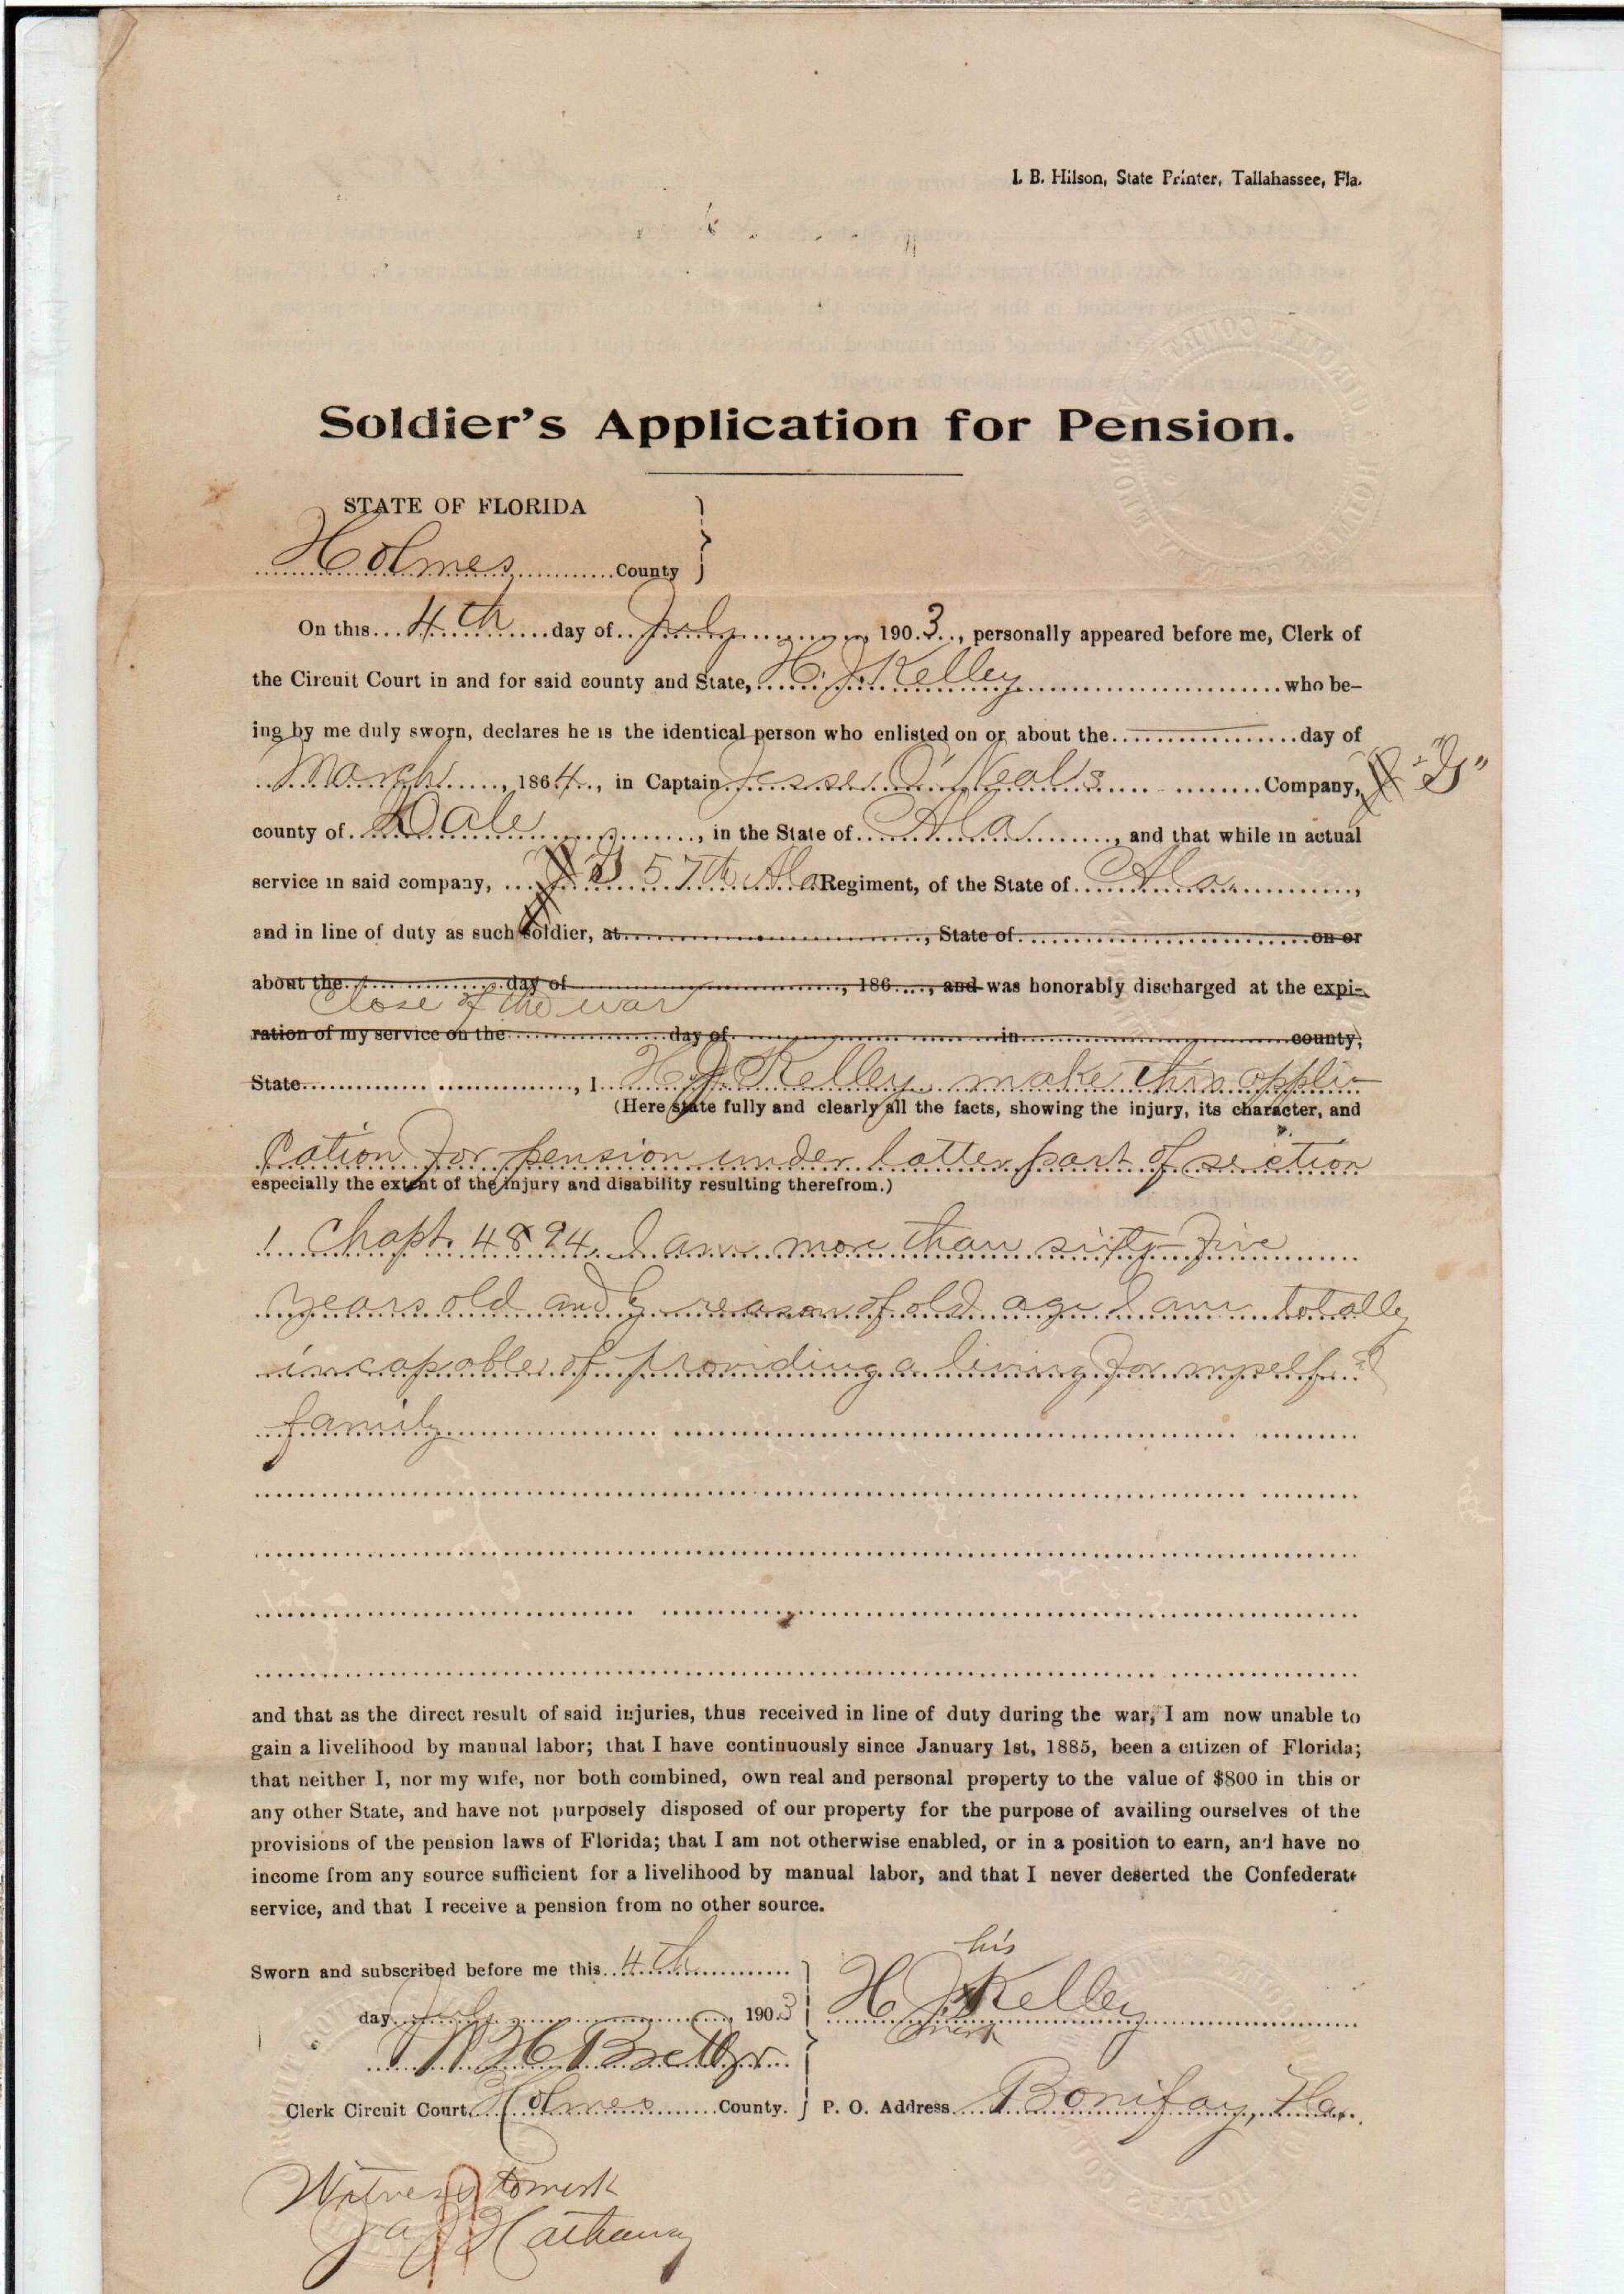 I. B. Hilson, State Printer, Tallahassee, Fla.
Soldier's Application for Pension.
STATE OF FLORIDA
Holmes County
On this 4th day of July, 1903, personally appeared before me, Clerk of
the Circuit Court in and for said county and State, H. J. Kelley who be-
ing by me duly sworn, declares he is the identical person who enlisted on or about the day of
March, 1864, in Captain Jesse O'Neal's Company,
county of Dale, in the State of Ala, and that while in actual
service in said company, 57th Ala Regiment, of the State of Ala,
and in line of duty as such soldier, at, State of on or
about the day of, 186, and was honorably discharged at the expi-
close of the war
ration of my service on the day of in county,
State, I H J Kelley make this appli-
(Here state fully and clearly all the facts, showing the injury, its character, and
cation for pension under latter part of section
especially the extent of the injury and disability resulting therefrom.)
1 Chapt. 4894. I am more than sixty-five
years old and by reason of old age I am totally
incapable of providing a living for myself &
family
and that as the direct result of said injuries, thus received in line of duty during the war, I am now unable to
gain a livelihood by manual labor; that I have continuously since January 1st, 1885, been a citizen of Florida;
that neither I, nor my wife, nor both combined, own real and personal property to the value of $800 in this or
any other State, and have not purposely disposed of our property for the purpose of availing ourselves of the
provisions of the pension laws of Florida; that I am not otherwise enabled, or in a position to earn, and have no
income from any source sufficient for a livelihood by manual labor, and that I never deserted the Confederate
service, and that I receive a pension from no other source.
his
Sworn and subscribed before me this 4th
H J X Kelley
day July, 1903
mark
Clerk Circuit Court Holmes County. P. O. Address Bonifay, Fla.
Witness to mark